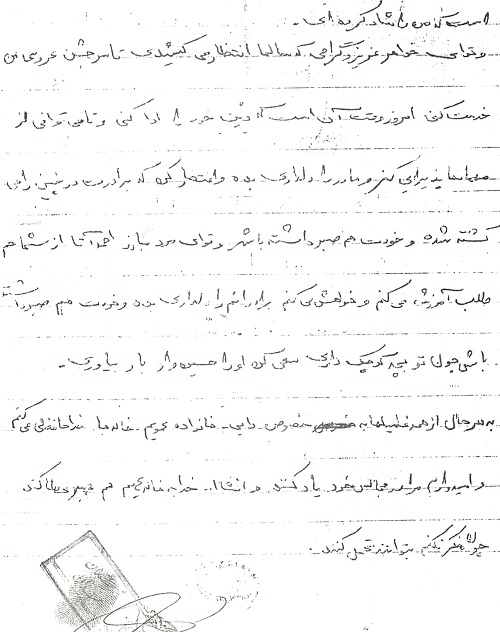 است که من را شاد کرده ای.
و توای خواهر عزیز و گرامی که سالها انتظار می کشیدی تا در جشن عروسی من
خدمت کنی امروز وقت آن است که دین خود را ادا کنی و تا می توانی از
مهمانها پذیرایی کن و مادر را دلداری بده و افتخار کن که برادرت در چنین راهی
کشته شده و خودت هم صبر داشته باش و توای مرد مبارز احمد آقا از شما هم
طلب آمرزش می کنم و خواهش می کنم برادرانم را دلداری بده و خودت هم صبور
باش چون تو بچه کوچک داری سعی کن او را حسین وار بار بیاوری.
به هر حال از همه فامیلها به خصوص دایی خانواده عمویم خاله ها خداحافظی می کنم
و امیدوارم مرا در مجالس خود یاد کنند و انشاا.. خدا به خانواده هم صبری عطا کند
چون فکر نکنم بتوانند تحمل کنند.